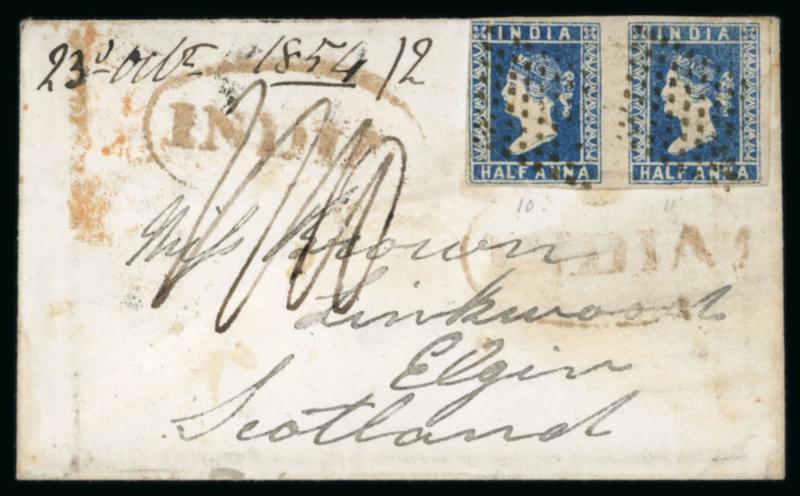 23d Octbr 1854 / 2
INDIA
INDIA
HALF ANNA
INDIA
HALF ANNA
10. 11
Miss Brown
INDIA
Linkwood
Elgin
Scotland